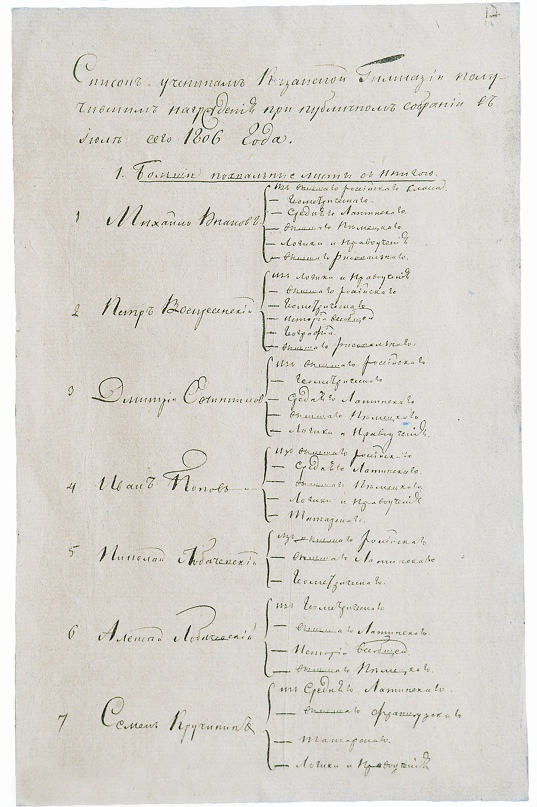 17
Списокъ ученикамъ Казанской Гимназіи полу-
чившимъ награжденія при публичномъ собраніи въ
Іюлѣ сего 1806 Года.
1. Большіе похвальные листы съ книгою.
1 Михайло Ивановъ
изъ вышшаго россійскаго класса
— Геометрическаго.
— Средняго Латинскаго.
— вышшаго Нѣмецкаго
— Логики и Нравоученія
— вышшаго рисовальнаго.
2 Петръ Воскресенскій
изъ Логики и Нравоученія
— вышшаго россійскаго
— Геометрическаго
— Исторіи всеобщей
— Географіи.
— вышшаго рисовальнаго.
3 Дмитрій
изъ вышшаго россійскаго
— Геометрическаго
— Средняго Латинскаго
— вышшаго Нѣмецкаго
— Логики и Нравоученія.
4 Иванъ Поповъ
изъ вышшаго россійскаго
— Средняго Латинскаго.
— вышшаго Нѣмецкаго
— Логики и Нравоученія
— Татарскаго.
5 Николай Лобачевскій
изъ вышшаго россійскаго
— вышшаго Латинскаго
— Геометрическаго.
6 Алексей Лобачевскій
изъ Геометрическаго
— вышшаго Латинскаго.
— Исторіи всеобщей.
— вышшаго Нѣмецкаго.
7 Семенъ Кручининъ
изъ Средняго Латинскаго.
— вышшаго французскаго
— Татарскаго.
— Логики и Нравоученія